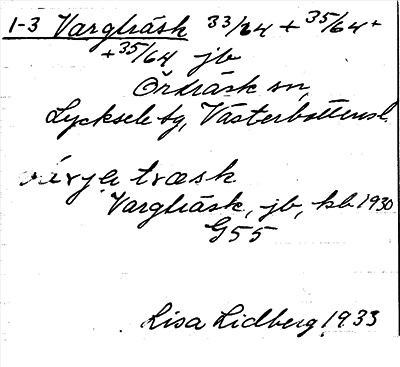 1-3 Vargträsk 33/24 + 35/64 +
+ 35/64 jb
Örträsk sn,
Lycksele tg, Västerbottensl.
träsk
Vargträsk, jb, kb 1930
G55
Lisa Lidberg 1933